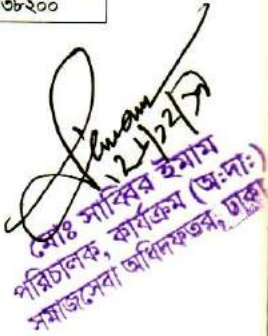 ৩৮২০০
মোঃ সাব্বির ইমাম
পরিচালক, কার্যক্রম (অ:দা:)
সমাজসেবা অধিদফতর, ঢাকা